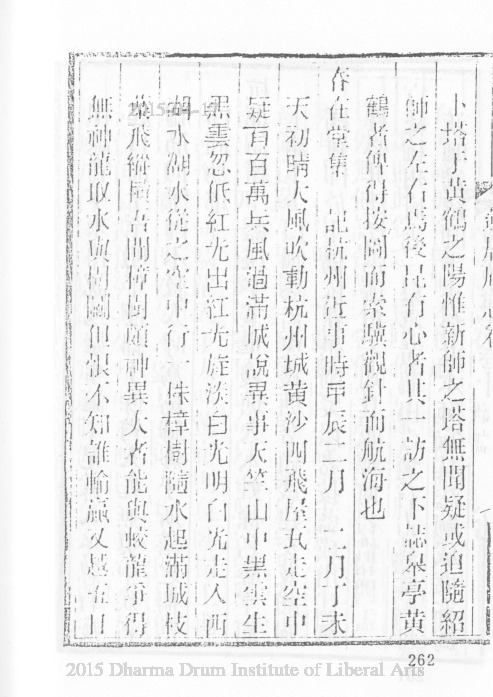 卜塔于黃鶴之陽惟新師之塔無聞疑或追隨紹
師之左右焉後昆有心者其一訪之下誌皋亭黃
鶴者俾得按圖而索驥觀針而航海也
在堂集 記杭州近事時甲辰二月 二月丁未
天初晴大風吹動杭州城黃沙四飛屋瓦走空中
疑有百萬兵風過滿城說異事天竺山中黑雲生
黑雲忽低紅光出紅光旋淡白光明白光走入西
湖水湖水從之空中行一株樟樹隨水起滿城枝
葉飛縱橫吾聞樟樹頗神異大者能與蛟龍爭得
無神龍取水與樹鬬但恨不知誰輸贏又越五日
262
2015 Dharma Drum Institute of Liberal Arts